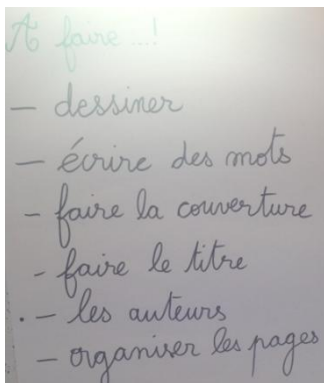 A faire...!
- dessiner
- écrire des mots
- faire la couverture
- faire le titre
. - les auteurs
- organiser les pages